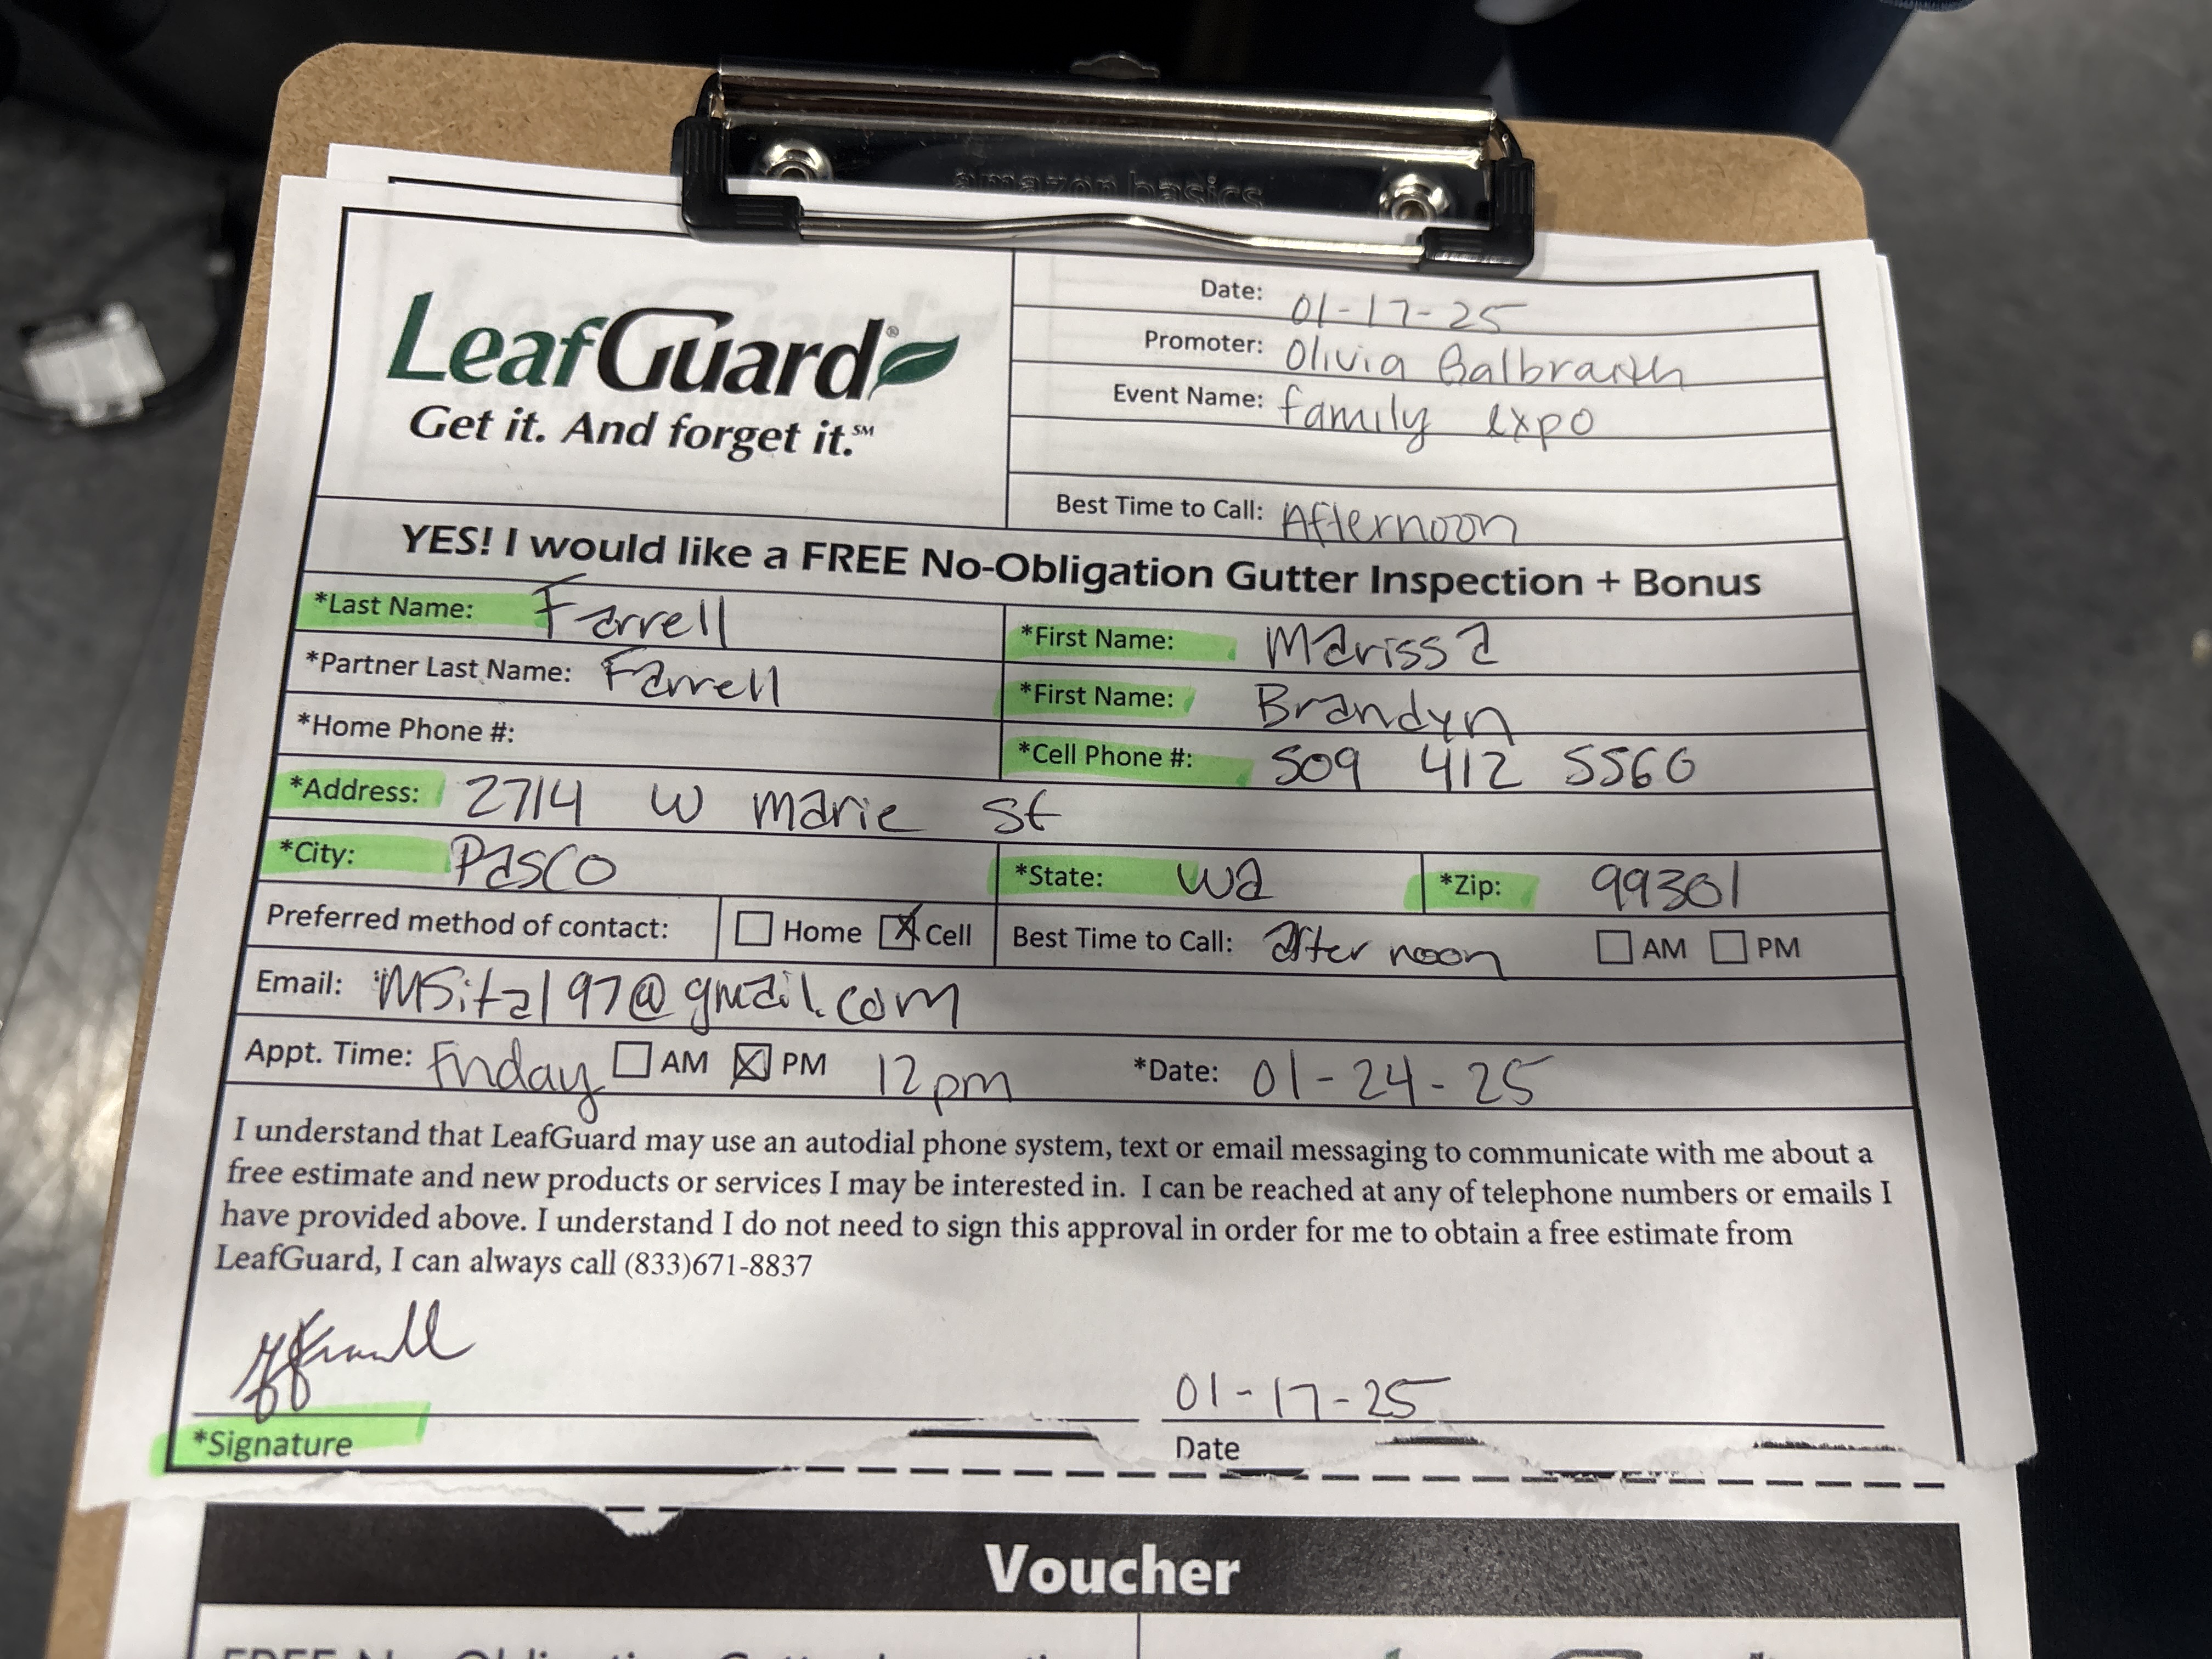 LeafGuard®
Get it. And forget it.℠
Date: 01-17-25
Promoter: Olivia Balbraith
Event Name: family expo
Best Time to Call: Afternoon
YES! I would like a FREE No-Obligation Gutter Inspection + Bonus
*Last Name: Farrell *First Name: Marissa
*Partner Last Name: Farrell *First Name: Brandyn
*Home Phone #: *Cell Phone #: 509 412 5560
*Address: 2714 W Marie St
*City: Pasco *State: Wa *Zip: 99301
Preferred method of contact: Home Cell Best Time to Call: after noon AM PM
Email: msita197@gmail.com
Appt. Time: Friday AM PM 12pm *Date: 01-24-25
I understand that LeafGuard may use an autodial phone system, text or email messaging to communicate with me about a
free estimate and new products or services I may be interested in. I can be reached at any of telephone numbers or emails I
have provided above. I understand I do not need to sign this approval in order for me to obtain a free estimate from
LeafGuard, I can always call (833)671-8837
01-17-25
*Signature Date
Voucher